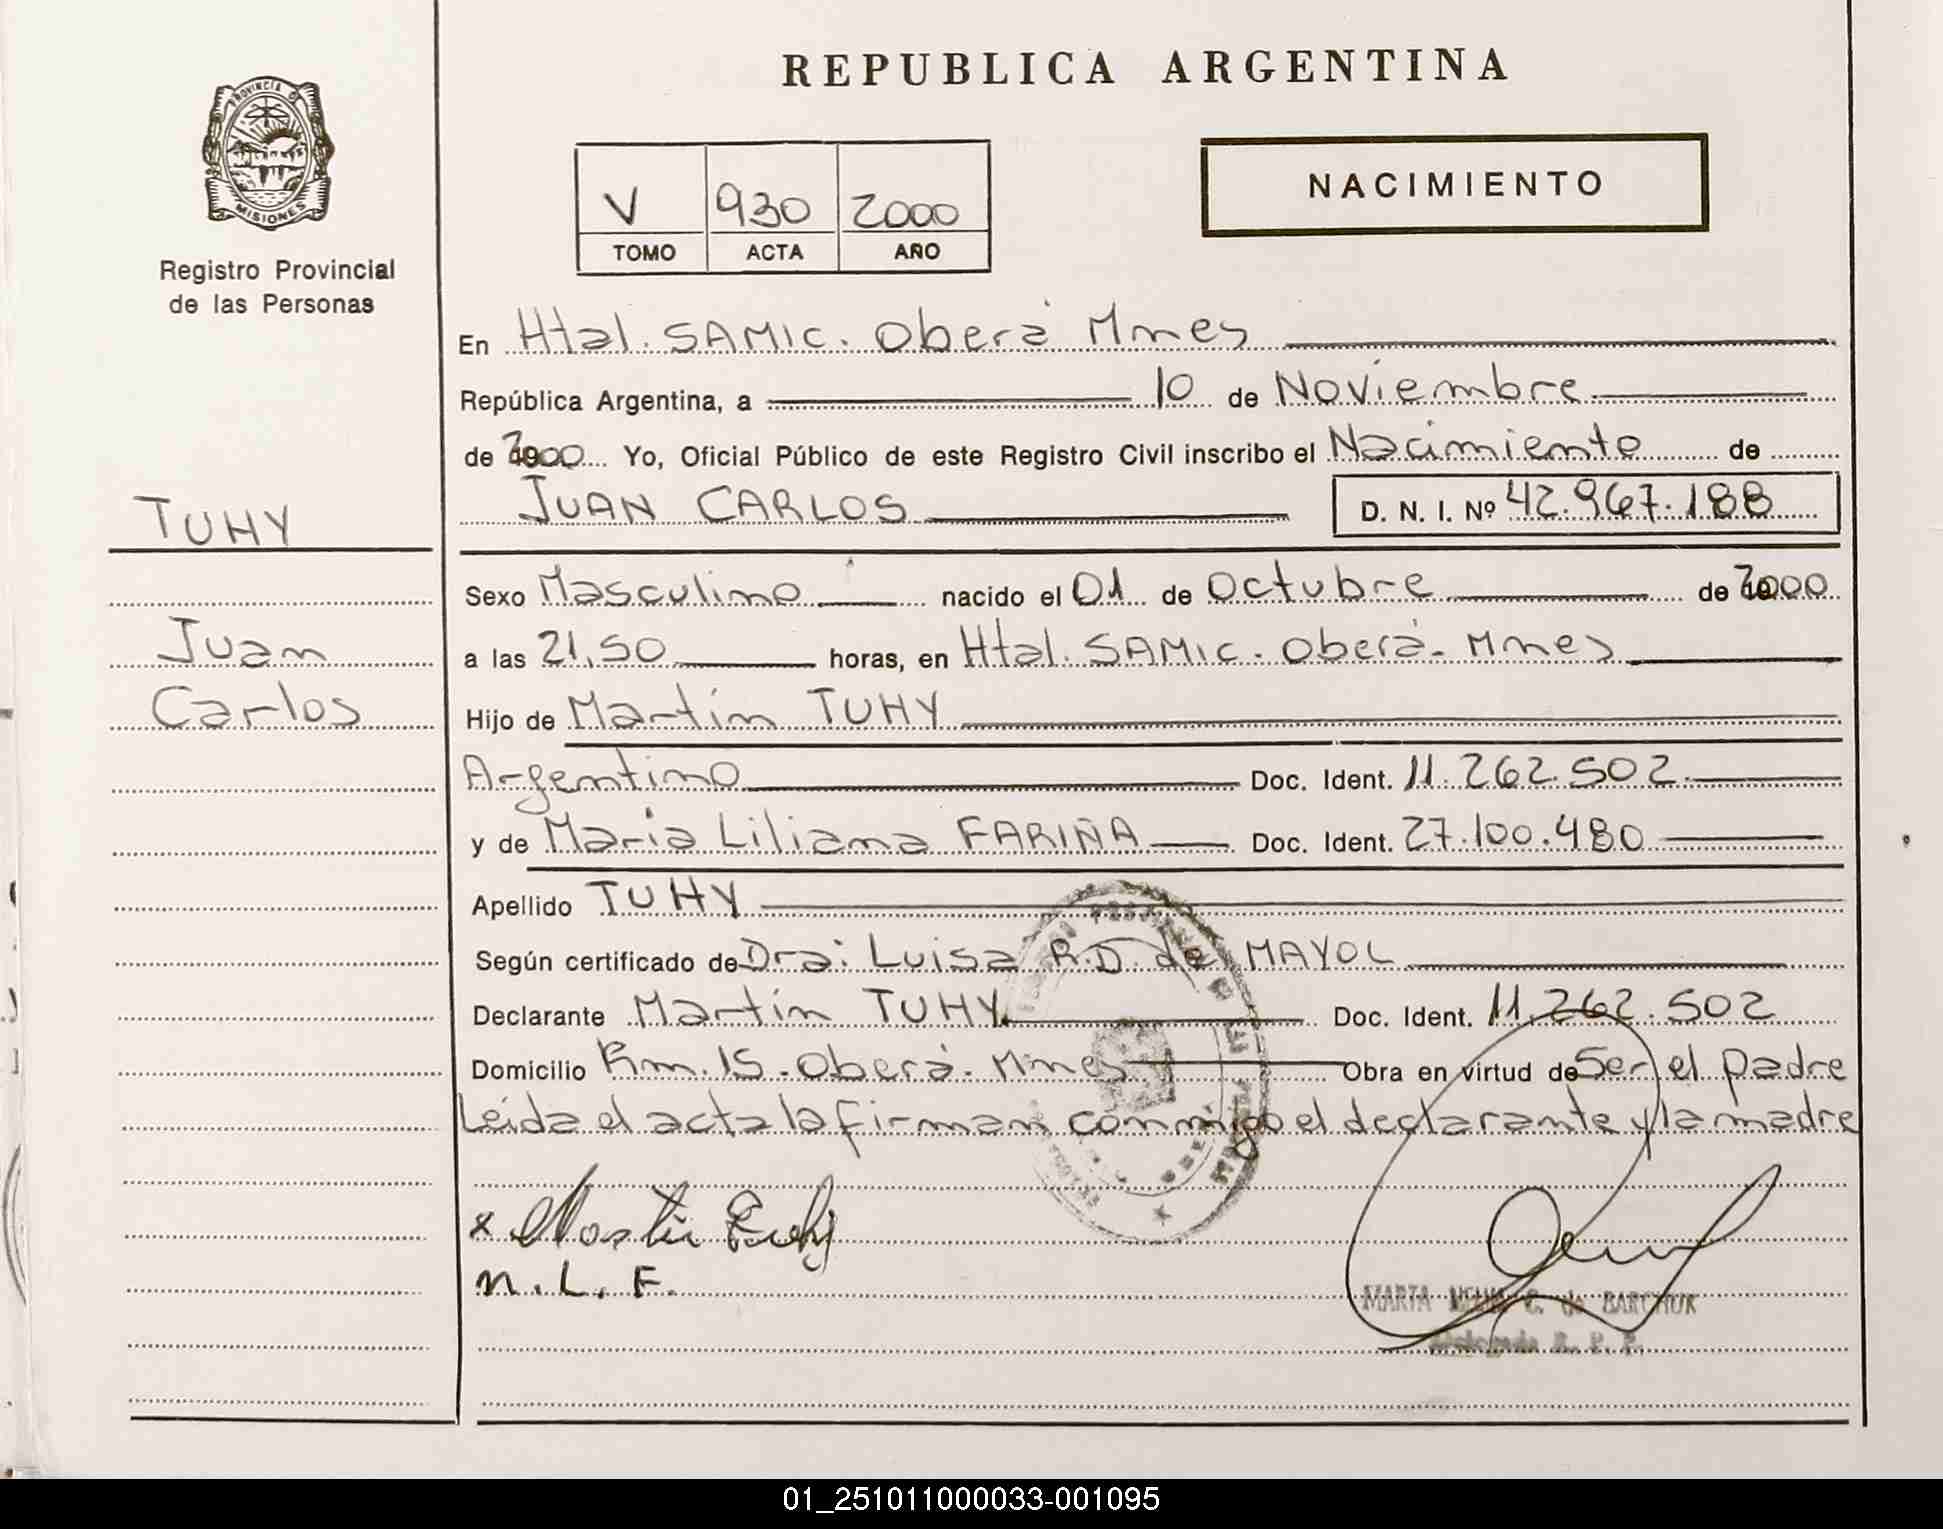 REPUBLICA ARGENTINA
PROVINCIA DE
MISIONES
Registro Provincial
de las Personas
V 930 2000
TOMO ACTA AÑO
NACIMIENTO
En Htal. SAMIC. Oberá Mnes
República Argentina, a 10 de Noviembre
de 2000 Yo, Oficial Público de este Registro Civil inscribo el Nacimiento de
JUAN CARLOS D. N. I. Nº 42.967.188
TUHY
Juan
Carlos
Sexo Masculino nacido el 01 de Octubre de 2000
a las 21,50 horas, en Htal. SAMIC. Oberá. Mnes
Hijo de Martín TUHY
Argentino Doc. Ident. 11.262.502
y de María Liliana FARIÑA Doc. Ident. 27.100.480
Apellido TUHY
Según certificado de Dra: Luisa R.D. de MAYOL
Declarante Martín TUHY Doc. Ident. 11.262.502
Domicilio Km. 15. Oberá. Mnes Obra en virtud de Ser el padre
Leída el acta la firman conmigo el declarante y la madre
x Martin Tuhy
M. L. F.
MARTA C. de BARCHUK
Delegada R. P. P.
01_251011000033-001095